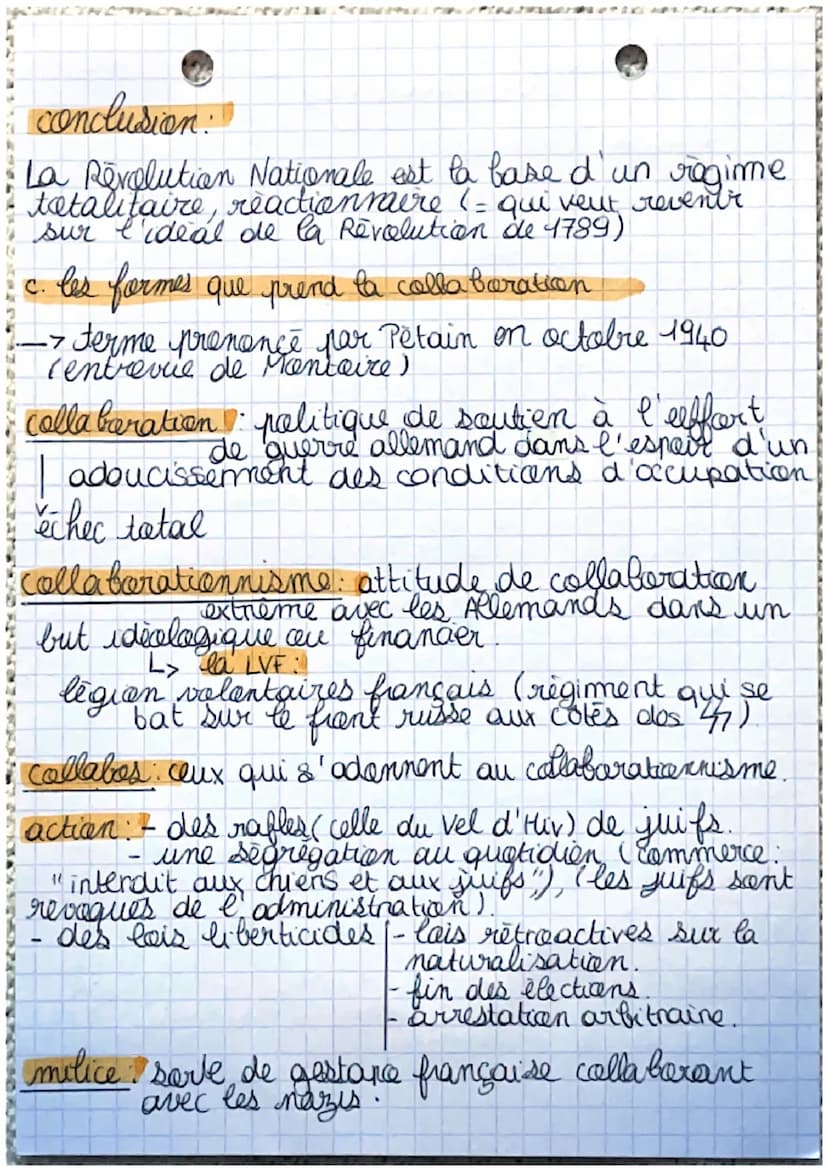 conclusion :
La Révolution Nationale est la base d'un régime
totalitaire, réactionnaire (= qui veut revenir
sur l'idéal de la Révolution de 1789)
c. les formes que prend la collaboration
—> terme prononcé par Pétain en octobre 1940
(entrevue de Montoire)
collaboration : politique de soutien à l'effort
de guerre allemand dans l'espoir d'un
adoucissement des conditions d'occupation
échec total
collaborationnisme : attitude de collaboration
extrême avec les Allemands dans un
but idéologique ou financier.
↳ la LVF :
légion volontaires français (régiment qui se
bat sur le front russe aux côtés dos ϟϟ)
collabos : ceux qui s'adonnent au collaborationnisme.
action : - des rafles (celle du Vel d'Hiv) de juifs.
- une ségrégation au quotidien (commerce :
"interdit aux chiens et aux juifs"), (les juifs sont
revoqués de l'administration).
- des lois liberticides |- lois rétroactives sur la
naturalisation.
- fin des élections.
- arrestation arbitraire.
milice : sorte de gestapo française collaborant
avec les nazis.